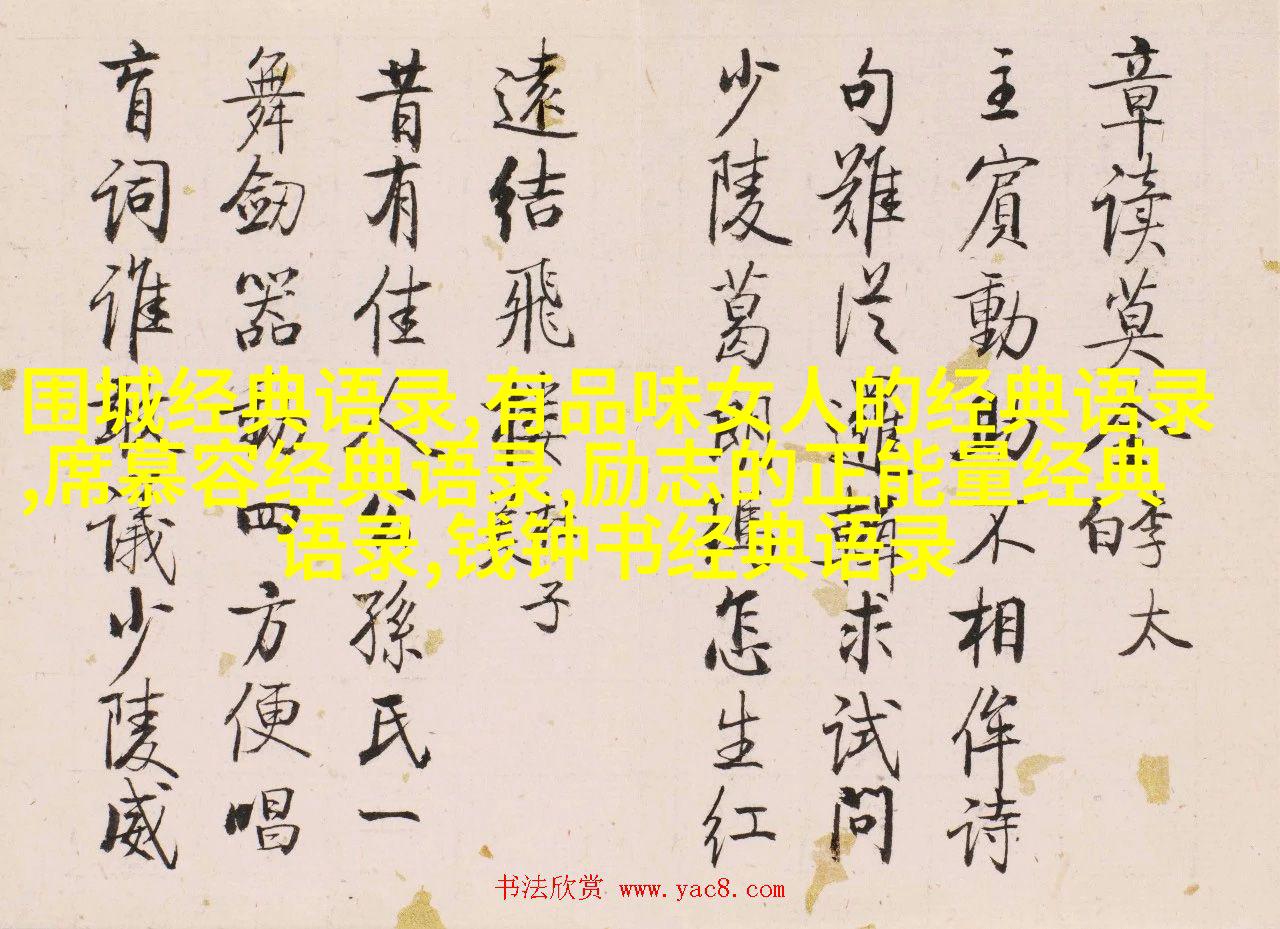 章读莫李太白
主賓動不相侔诗
句難從求试問
少陵葛怎生红
遠结飛子
昔有佳人公孫氏一
舞劒器動四方便唱
盲词谁議少陵威
围城经典语录,有品味女人的经典语录
,席慕容经典语录,励志的正能量经典
语录,钱钟书经典语录
书法欣赏 www.yac8.com